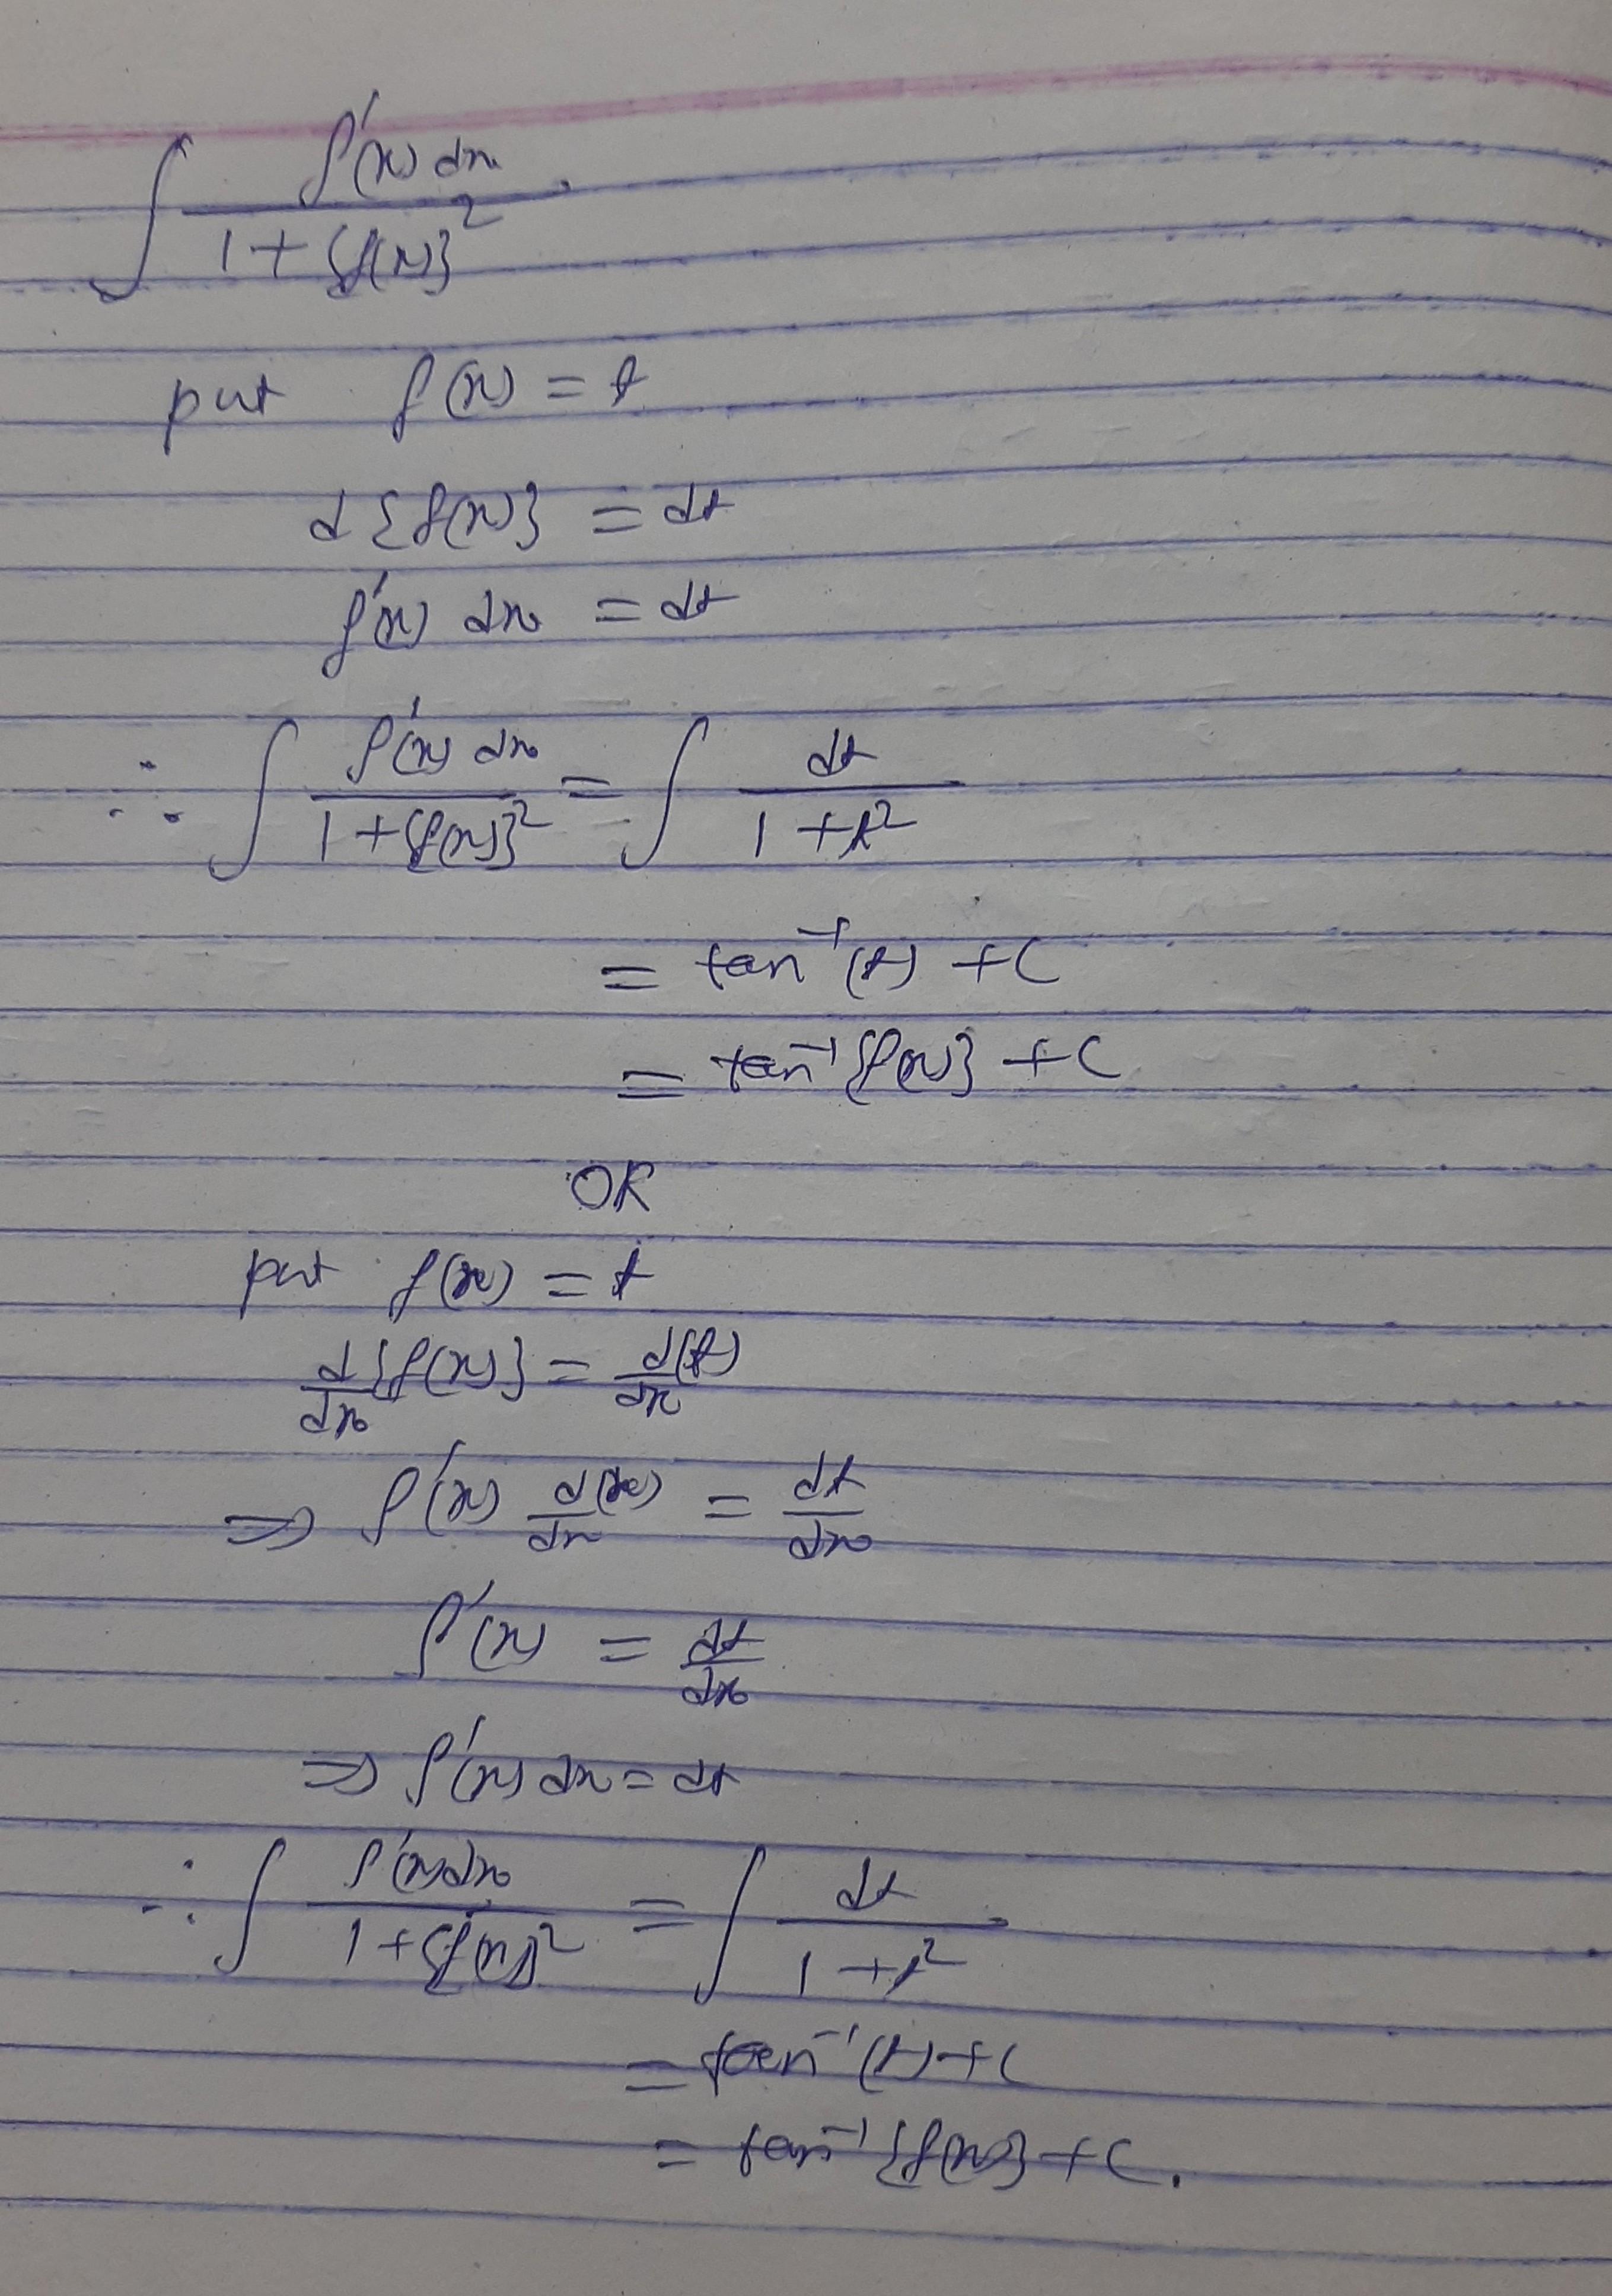 ∫ f'(x) dx / 1 + {f(x)}²
put f(x) = t
d {f(x)} = dt
f'(x) dx = dt
∴ ∫ f'(x) dx / 1 + {f(x)}² = ∫ dt / 1 + t²
= tan⁻¹(t) + C
= tan⁻¹{f(x)} + C
OR
put f(x) = t
d/dx {f(x)} = d(t)/dx
⇒ f'(x) d(x)/dx = dt/dx
f'(x) = dt/dx
⇒ f'(x) dx = dt
∴ ∫ f'(x) dx / 1 + {f(x)}² = ∫ dt / 1 + t²
= tan⁻¹(t) + C
= tan⁻¹{f(x)} + C.